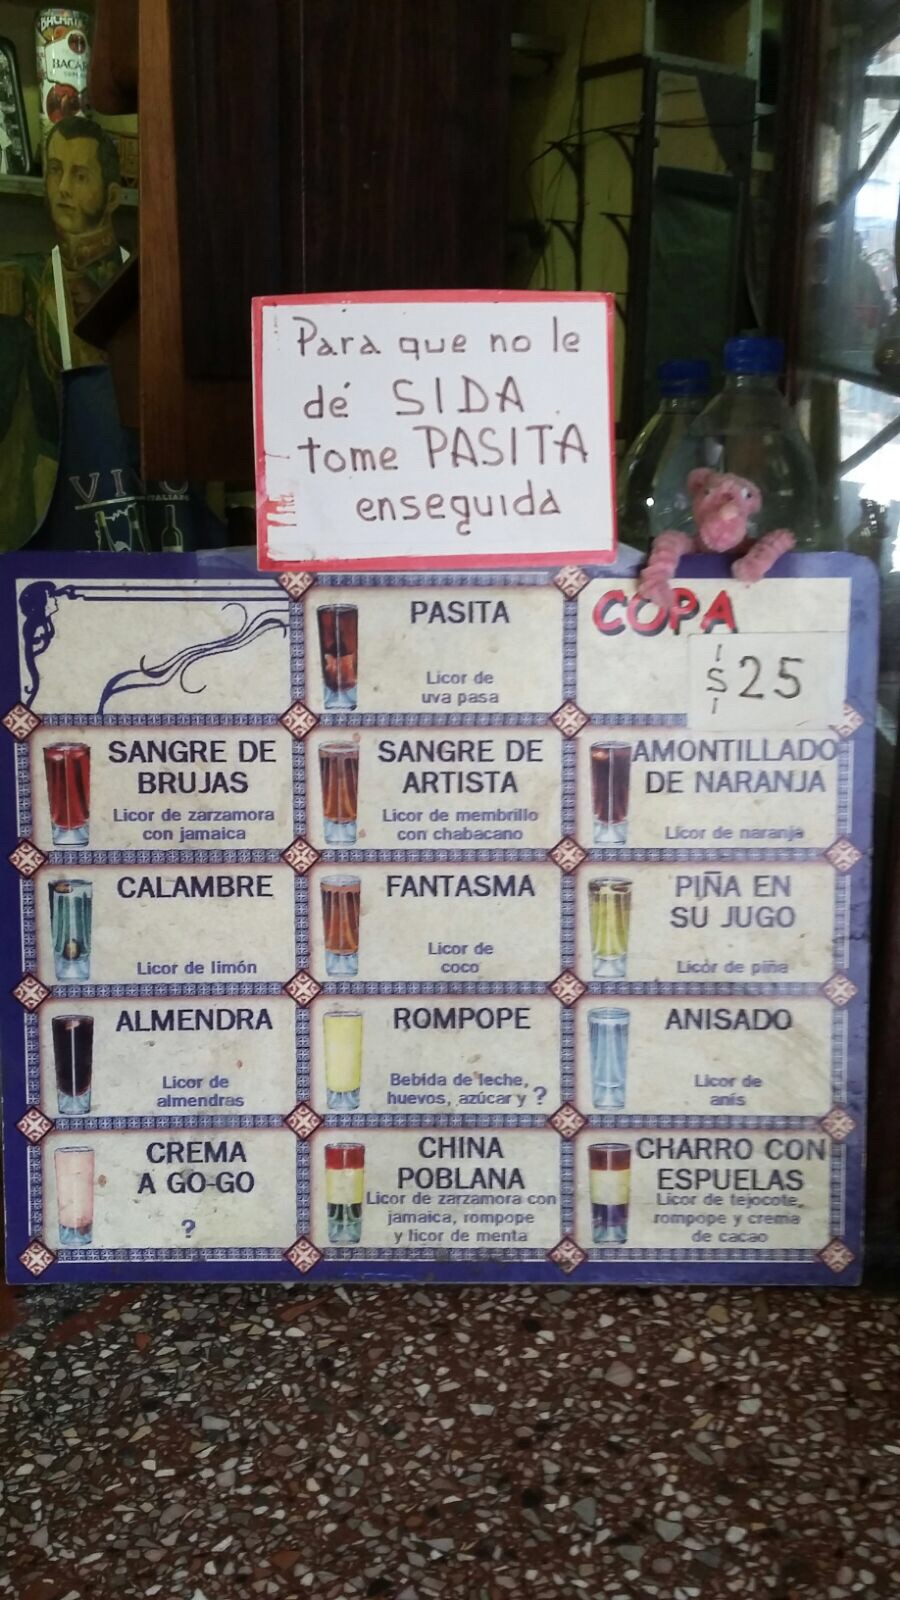 BACARDI
BACAR
VIVO
ITALIANO
Para que no le
dé SIDA
tome PASITA
enseguida
PASITA
Licor de
uva pasa
COPA
$25
SANGRE DE
BRUJAS
Licor de zarzamora
con jamaica
SANGRE DE
ARTISTA
Licor de membrillo
con chabacano
AMONTILLADO
DE NARANJA
Licor de naranja
CALAMBRE
Licor de limón
FANTASMA
Licor de
coco
PIÑA EN
SU JUGO
Licor de piña
ALMENDRA
Licor de
almendras
ROMPOPE
Bebida de leche,
huevos, azúcar y ?
ANISADO
Licor de
anís
CREMA
A GO-GO
?
CHINA
POBLANA
Licor de zarzamora con
jamaica, rompope
y licor de menta
CHARRO CON
ESPUELAS
Licor de tejocote,
rompope y crema
de cacao